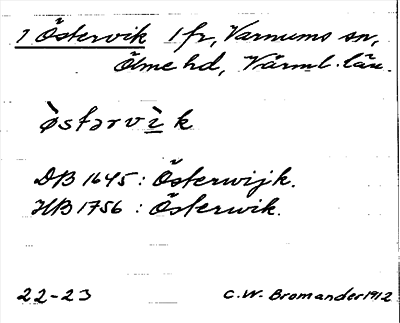 1 Östervik 1 fr, Varnums sn,
Ölme hd, Värml. län.
ö̀stərvì̲k
DB 1645: Österwijk.
HB 1756: Österwik.
22-23 C.W. Bromander 1912